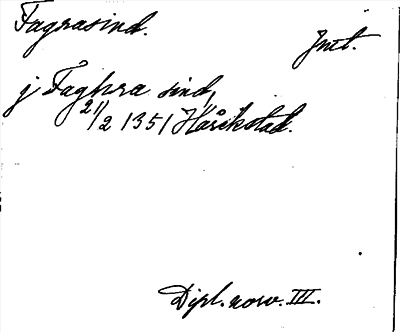 Fagrasind. Jmt.
j Faghra sind,
21/2 1351 Hårikstad.
Dipl. norv. III.